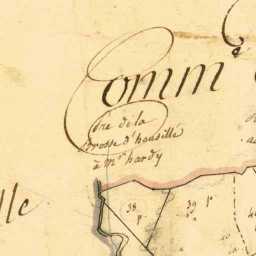 Comm.e
Dre de la
Brosse d'housille
à Mr. hardy
lle
38
P
39 P